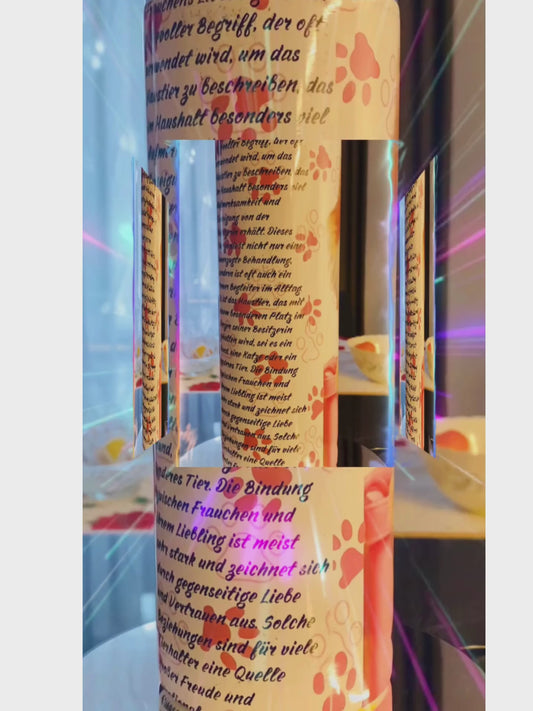 Frauchens Lie
voller Begriff, der oft
verwendet wird, um das
Haustier zu beschreiben, das
im Haushalt besonders viel
voller Begriff, der of
wendet wird, um das
stier zu beschreiben, das
Haushalt besonders viel
merksamkeit und
eigung von der
erhält. Dieses
nicht nur eine
rzugte Behandlung,
ndern ist oft auch ein
en Begleiter im Alltag.
ist das Haustier, das mit
em besonderen Platz im
seiner Besitzerin
halten wird, sei es ein
nd, eine Katze oder ein
eres Tier. Die Bindung
ischen Frauchen und
em Liebling ist meist
hr stark und zeichnet sich
gegenseitige Liebe
Vertrauen aus. Solche
ehungen sind für viele
halter eine Quelle
nderes Tier. Die Bindung
zwischen Frauchen und
ihrem Liebling ist meist
sehr stark und zeichnet sich
durch gegenseitige Liebe
und Vertrauen aus. Solche
Beziehungen sind für viele
Tierhalter eine Quelle
großer Freude und